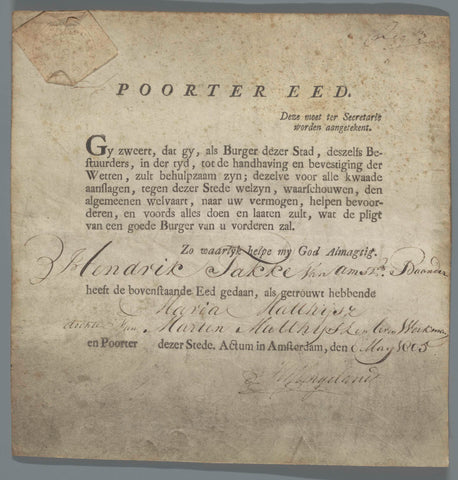 POORTER EED.
Deze moet ter Secretarie
worden aangetekent.
Gy zweert, dat gy, als Burger dezer Stad, deszelfs Be-
stuurders, in der tyd, tot de handhaving en bevestiging der
Wetten, zult behulpzaam zyn; dezelve voor alle kwaade
aanslagen, tegen dezer Stede welzyn, waarschouwen, den
algemeenen welvaart, naar uw vermogen, helpen bevoor-
deren, en voords alles doen en laaten zult, wat de pligt
van een goede Burger van u vorderen zal.
Zo waarlyk helpe my God Almagtig.
Hendrik Takke van Amst.
heeft de bovenstaande Eed gedaan, als getrouwt hebbende
Maria Matthysz
dochter van Marten Matthysz
en Poorter dezer Stede. Actum in Amsterdam, den 6 May 1805